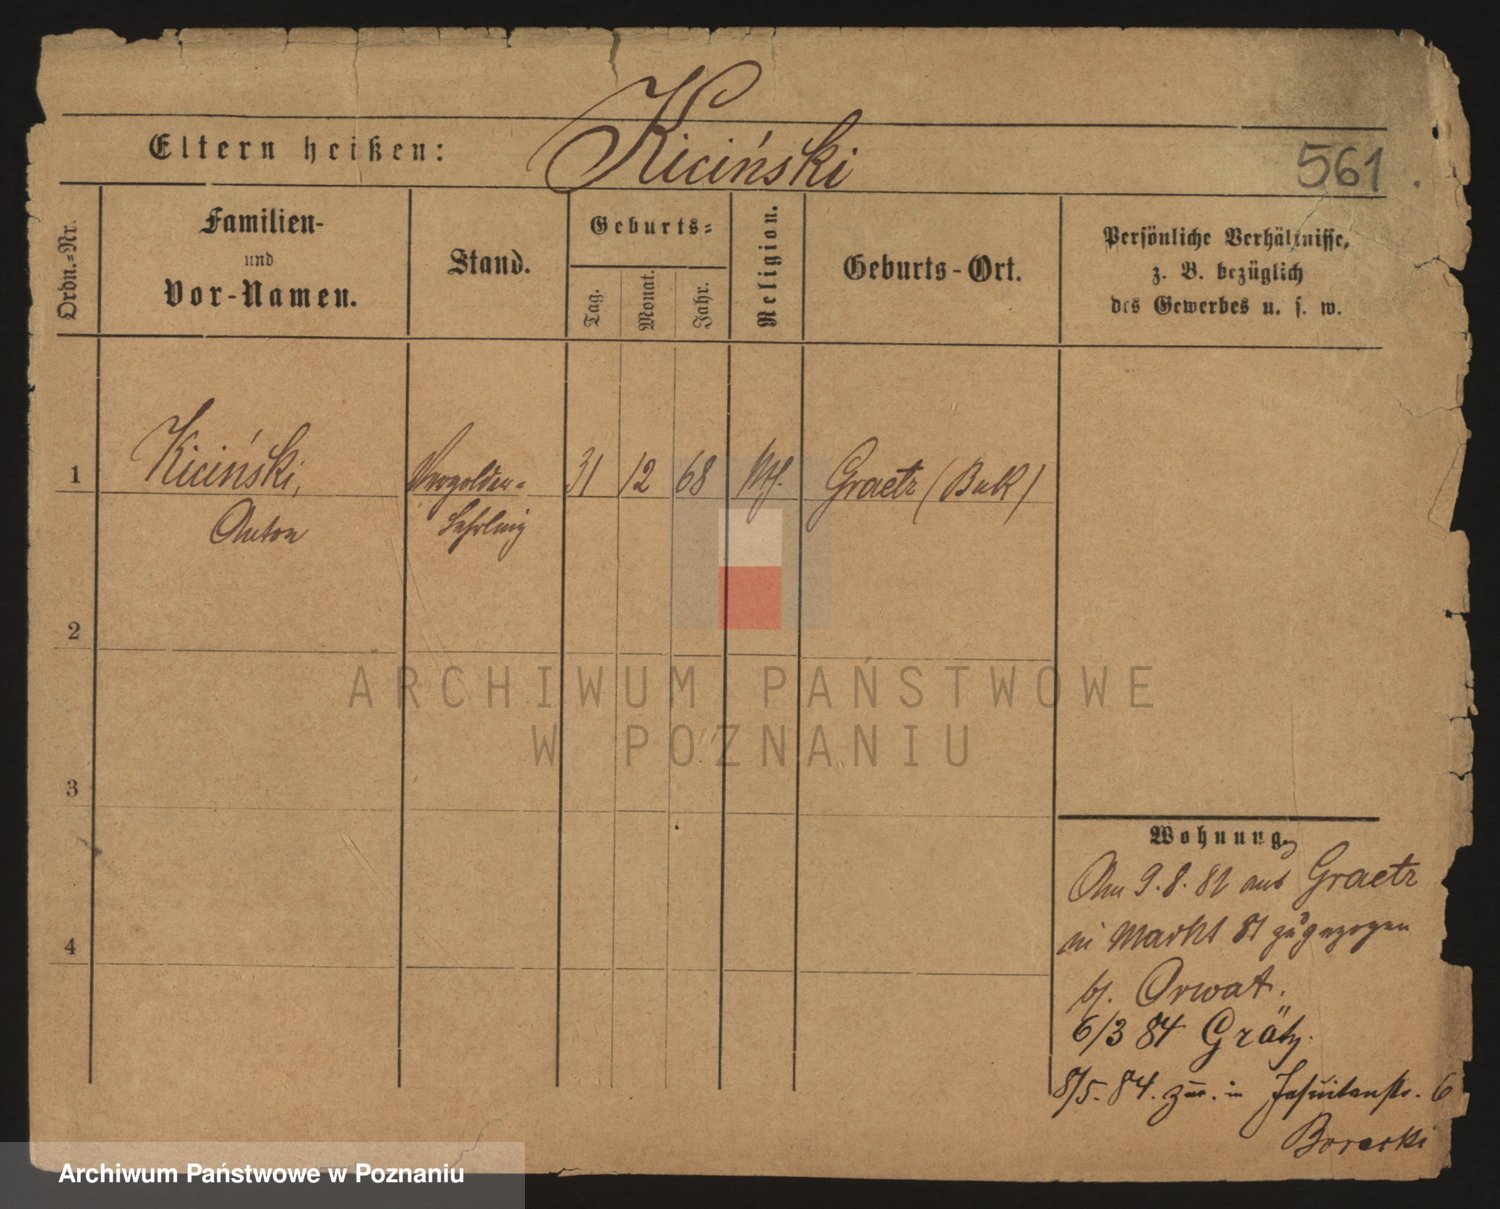 Eltern heißen: Kiciński 561
Ordn.-Nr.
Familien-
und
Vor-Namen.
Stand.
Geburts-
Tag.
Monat.
Jahr.
Religion.
Geburts-Ort.
Persönliche Verhältnisse,
z. B. bezüglich
des Gewerbes u. s. w.
1 Kiciński, Vergolder- 31 12 68 Graetz (Buk)
Anton Lehrling
2
ARCHIWUM PAŃSTWOWE
W POZNANIU
3
Wohnung.
Am 9.8. aus Graetz
Markt 81 zugezogen
4
b/. Orwat.
6/3 84 Grätz.
8/5. 84. zur. in Jesuitenstr. 6
Borecki
Archiwum Państwowe w Poznaniu